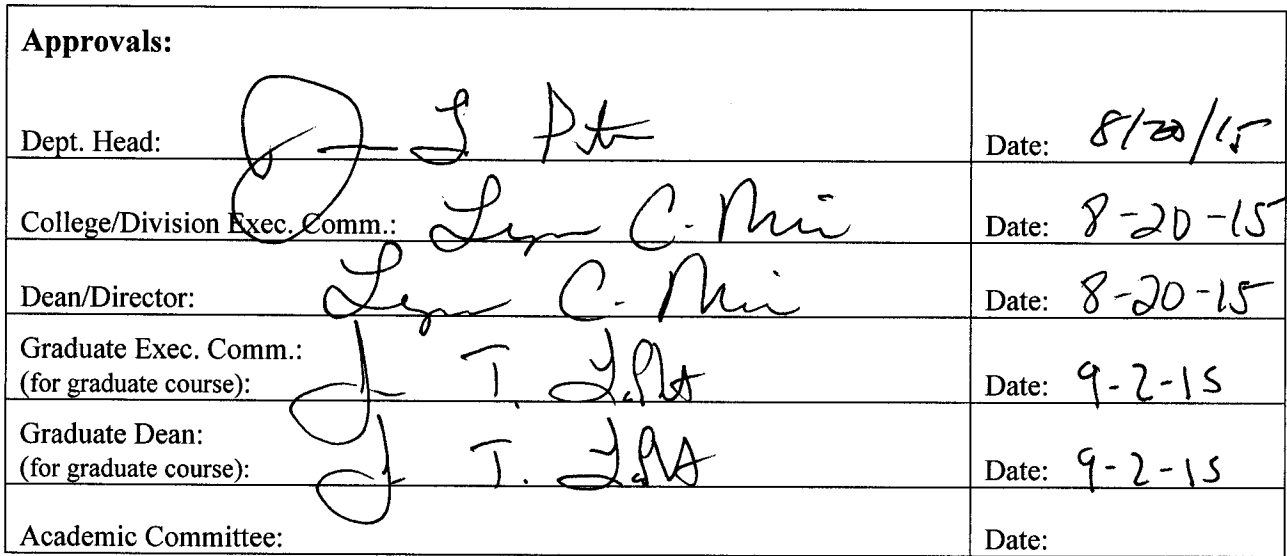 Approvals:
Dept. Head: Date: 8/20/15
College/Division Exec. Comm.: C. Date: 8-20-15
Dean/Director: C. Date: 8-20-15
Graduate Exec. Comm.:
(for graduate course): T. Date: 9-2-15
Graduate Dean:
(for graduate course): T. Date: 9-2-15
Academic Committee: Date: